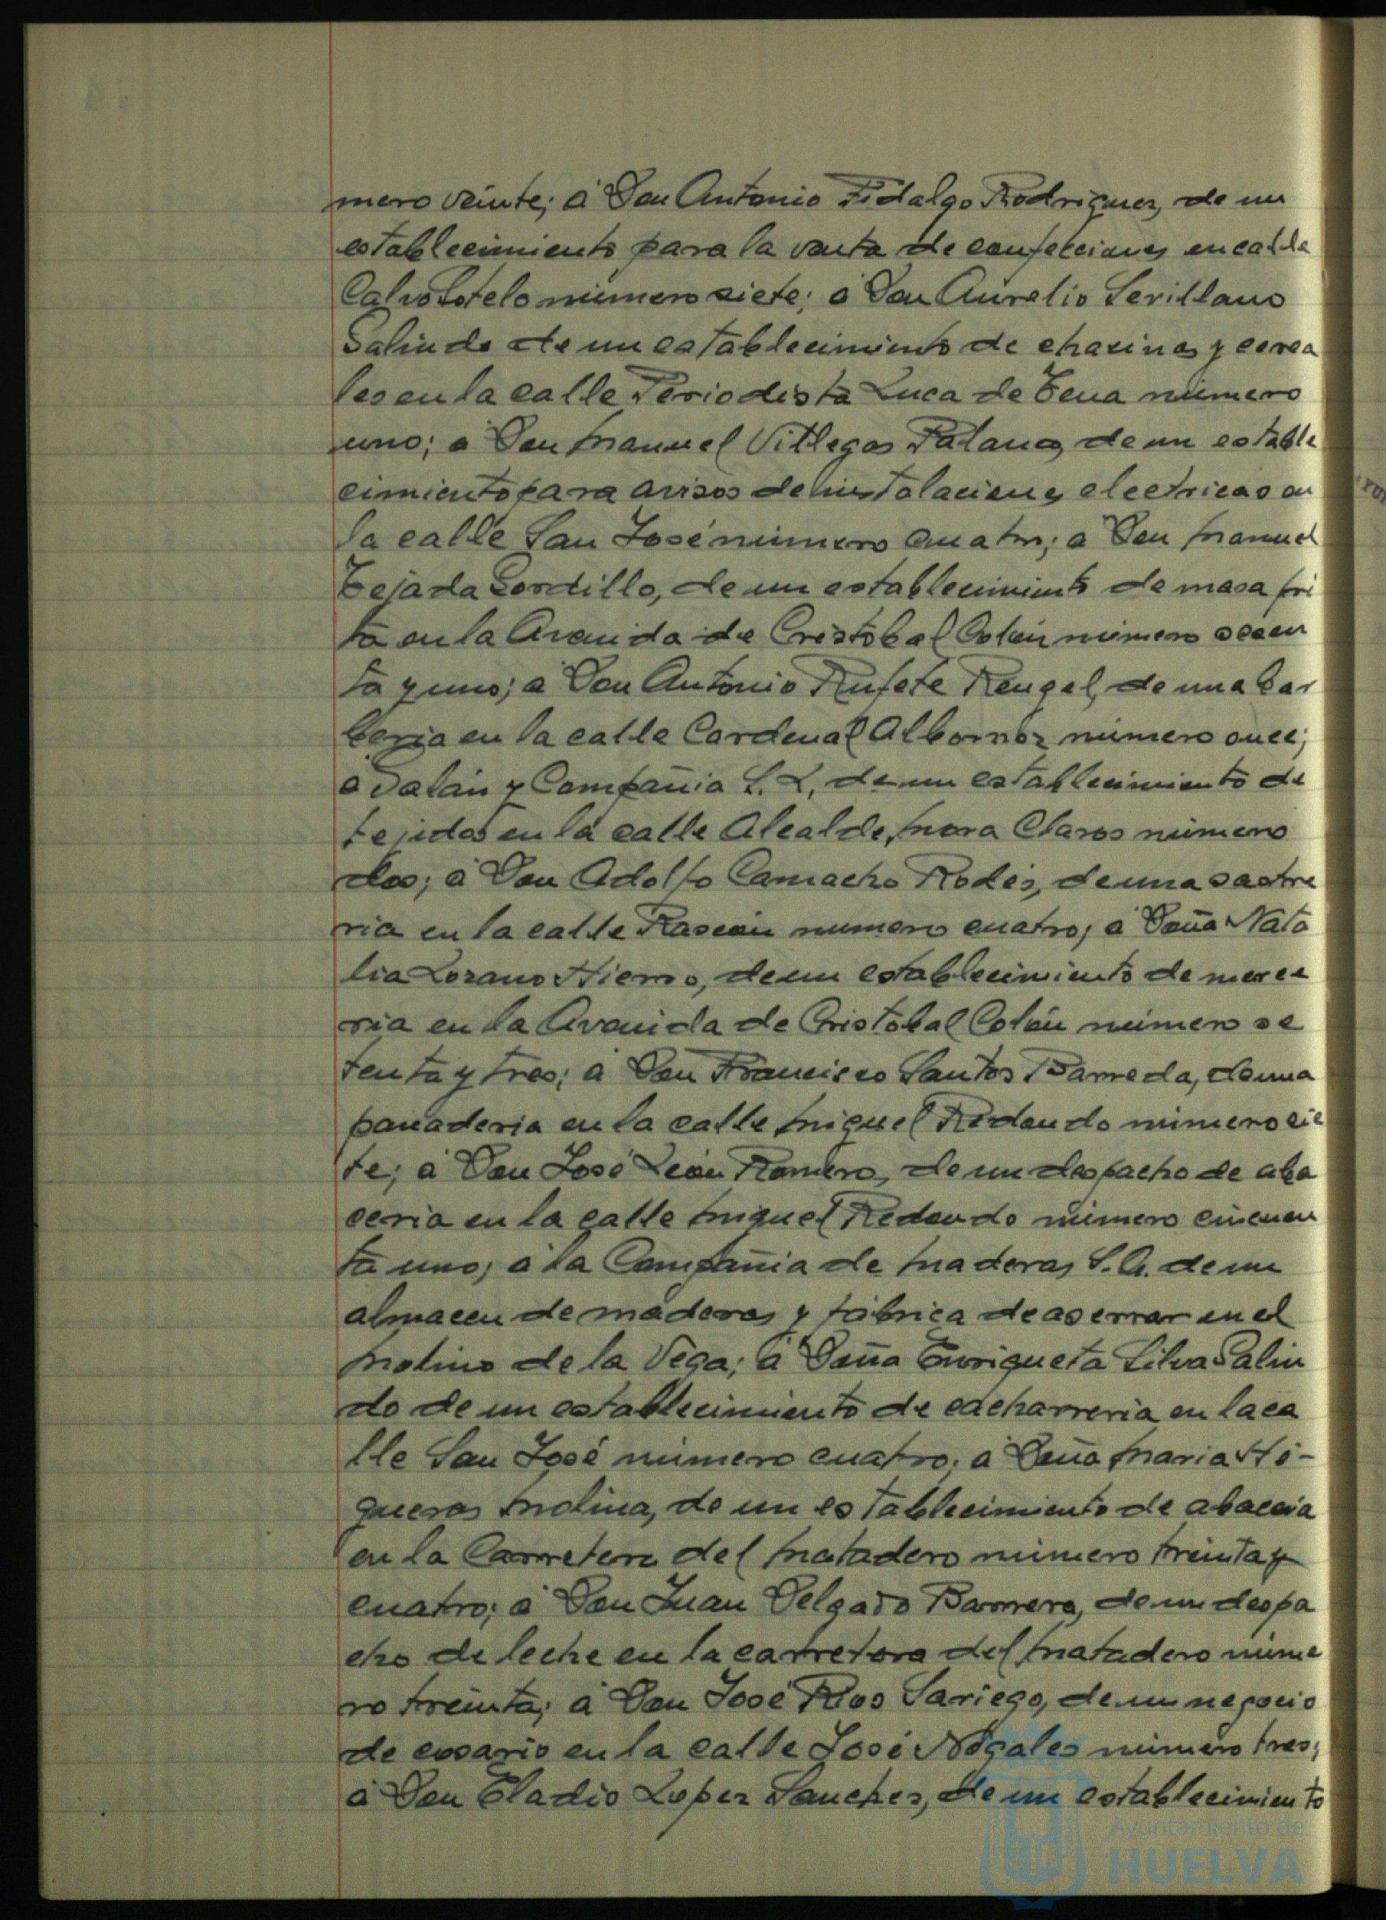 mero veinte; á Don Antonio Fidalgo Rodriguez, de un
establecimiento para la venta de confecciones en calle
Calvo Sotelo número siete; á Don Aurelio Sevillano
Galindo de un establecimiento de chacinas y cerea
les en la calle Periodista Luca de Tena número
uno; a Don Manuel Villegas Palano, de un estable
cimiento para avisos de instalaciones electricas en
la calle San José número cuatro; a Don Manuel
Tejada Gordillo, de un establecimiento de masa fri
ta en la Avenida de Cristobal Colón número sesen
ta y uno; á Don Antonio Rufete Rengel, de una bar
beria en la calle Cardenal Albornoz número once;
a Galán y Compañia S. L, de un establecimiento de
tejidos en la calle Alcalde Mora Claros número
dos; á Don Adolfo Camacho Rodés, de una sastre
ria en la calle Rascón numero cuatro; á Doña Nata
lia Lozano Hierro, de un establecimiento de merce
ria en la Avenida de Cristóbal Colón número se
tenta y tres; á Don Francisco Santos Barreda, de una
panaderia en la calle Miguel Redondo número sie
te; á Don José León Romero, de un despacho de aba
ceria en la calle Miguel Redondo número cincuen
ta uno; a la Compañia de Maderas S. A. de un
almacen de maderas y fábrica de aserrar en el
Molino de la Vega; á Doña Enriqueta Silva Galin
do de un establecimiento de cacharreria en la ca
lle San José número cuatro; á Doña Maria Hi-
gueras Molina, de un establecimiento de abaceria
en la Carretera del Matadero número treinta y
cuatro; á Don Juan Delgado Barrera, de un despa
cho de leche en la carretera del Matadero núme
ro treinta; á Don José Rios Sariego, de un negocio
de cosario en la calle José Nogales número tres;
á Don Eladio Lopez Sanchez, de un establecimiento
Ayuntamiento de
HUELVA